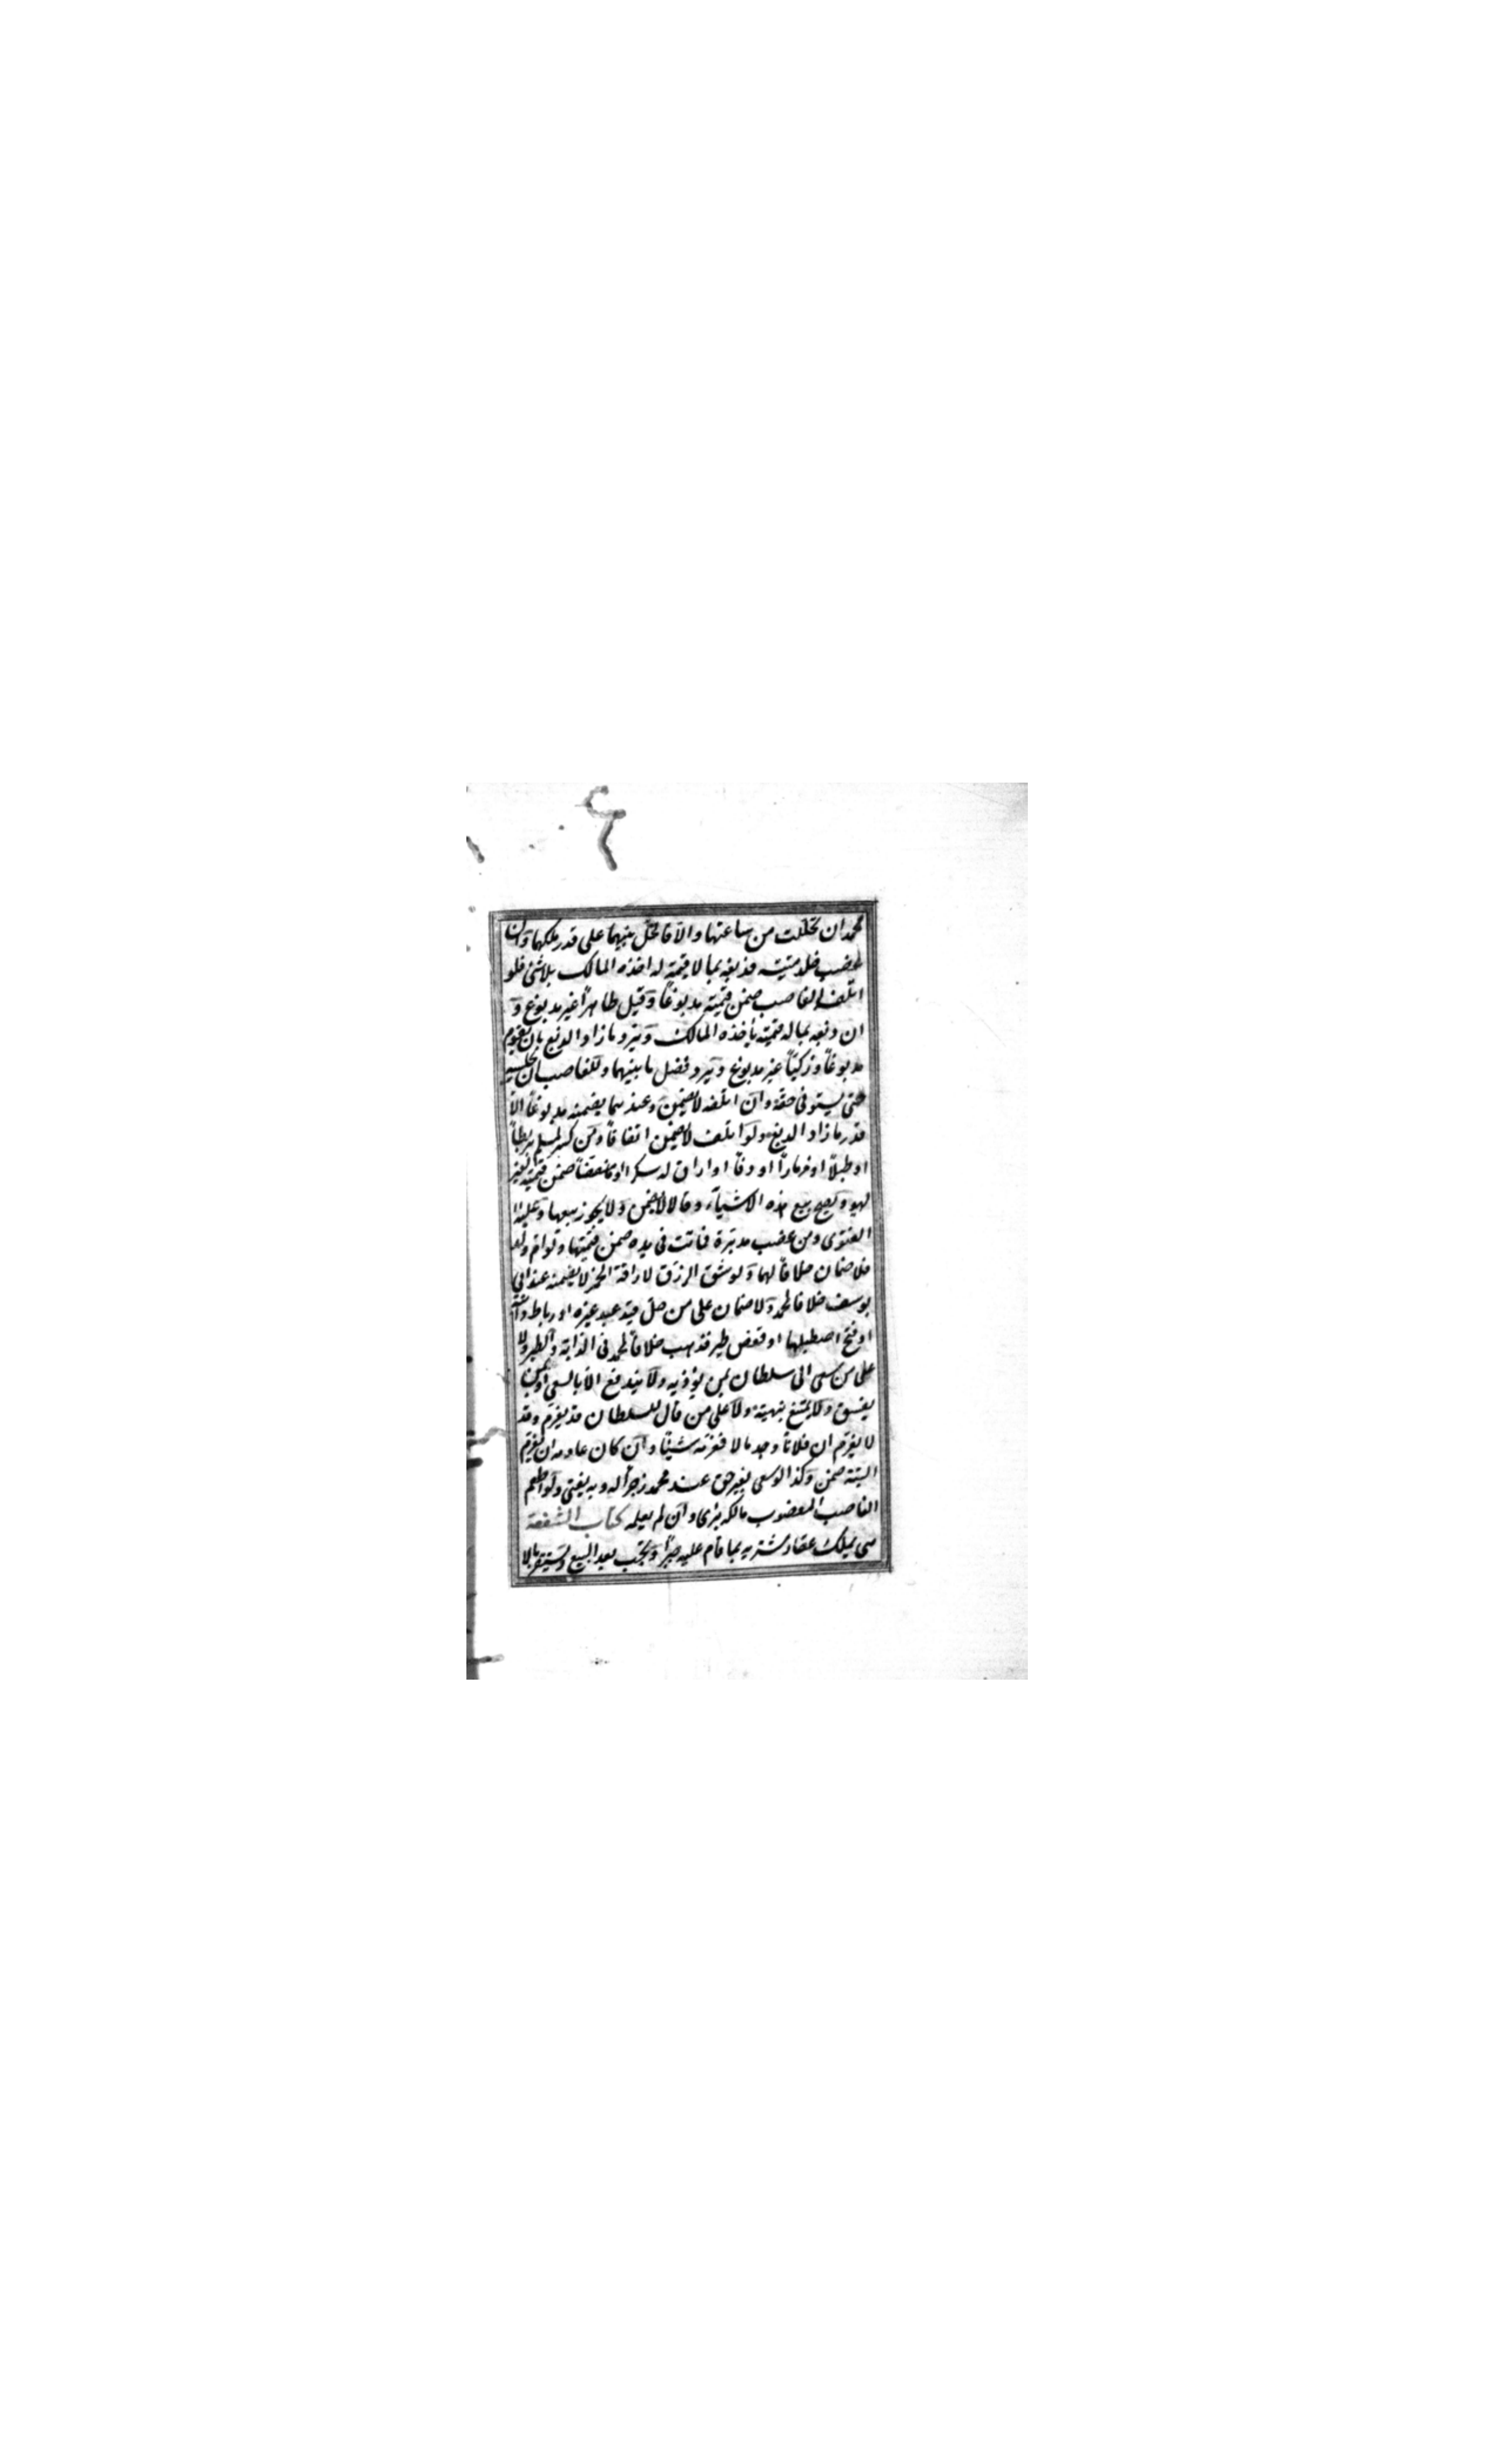 محمد ان تخللت من ساعتها والا فالخل بينهما على قدر ملكهما وان
غصب جلد ميتة فدبغه بما لا قيمة له اخذه المالك بلا شئ فلو
اتلفه الغاصب ضمن قيمته مدبوغا وقيل طاهرا غير مدبوغ و
ان دبغه بما له قيمة يأخذه المالك ويرد ما زاد الدبغ بان يقوم
مدبوغا وذكيا غير مدبوغ ويرد فضل ما بينهما وللغاصب ان يحبسه
حتى يستوفى حقه وان اتلفه لا يضمن وعندهما يضمنه مدبوغا الا
قدر ما زاد الدبغ ولو تلف لا يضمن اتفاقا ومن كسر لمسلم بربطا
او طبلا او مزمارا او دفا او اراق له سكرا او منصفا ضمن قيمته لغير
لهو ويصح بيع هذه الاشياء وقالا لا يضمن ولا يجوز بيعها وعليه
الفتوى ومن غصب مدبرة فماتت فى يده ضمن قيمتها ولو ام ولد
فلا ضمان خلافا لهما ولو شق الزق لاراقة الخمر لا يضمنه عند ابى
يوسف خلافا لمحمد ولا ضمان على من حل قيد عبد غيره او رباط دابته
او فتح اصطبلها او قفص طير فذهب خلافا لمحمد فى الدابة والطير ولا
على من سعى الى سلطان بمن يؤذيه ولا يندفع الا بالسعى او بمن
يفسق ولا يمتنع بنهيه ولا على من قال لسلطان قد يغرم وقد
لا يغرم ان فلانا وجد مالا فغرمه شيئا وان كان عادته ان يغرم
البتة ضمن وكذا لو سعى بغير حق عند محمد زجرا له وبه يفتى ولو اطعم
الغاصب المغصوب مالكه برئ وان لم يعلمه كتاب الشفعة
هى تملك عقار مشتريه بما قام عليه جبرا وتجب بعد البيع وتستقر بالا